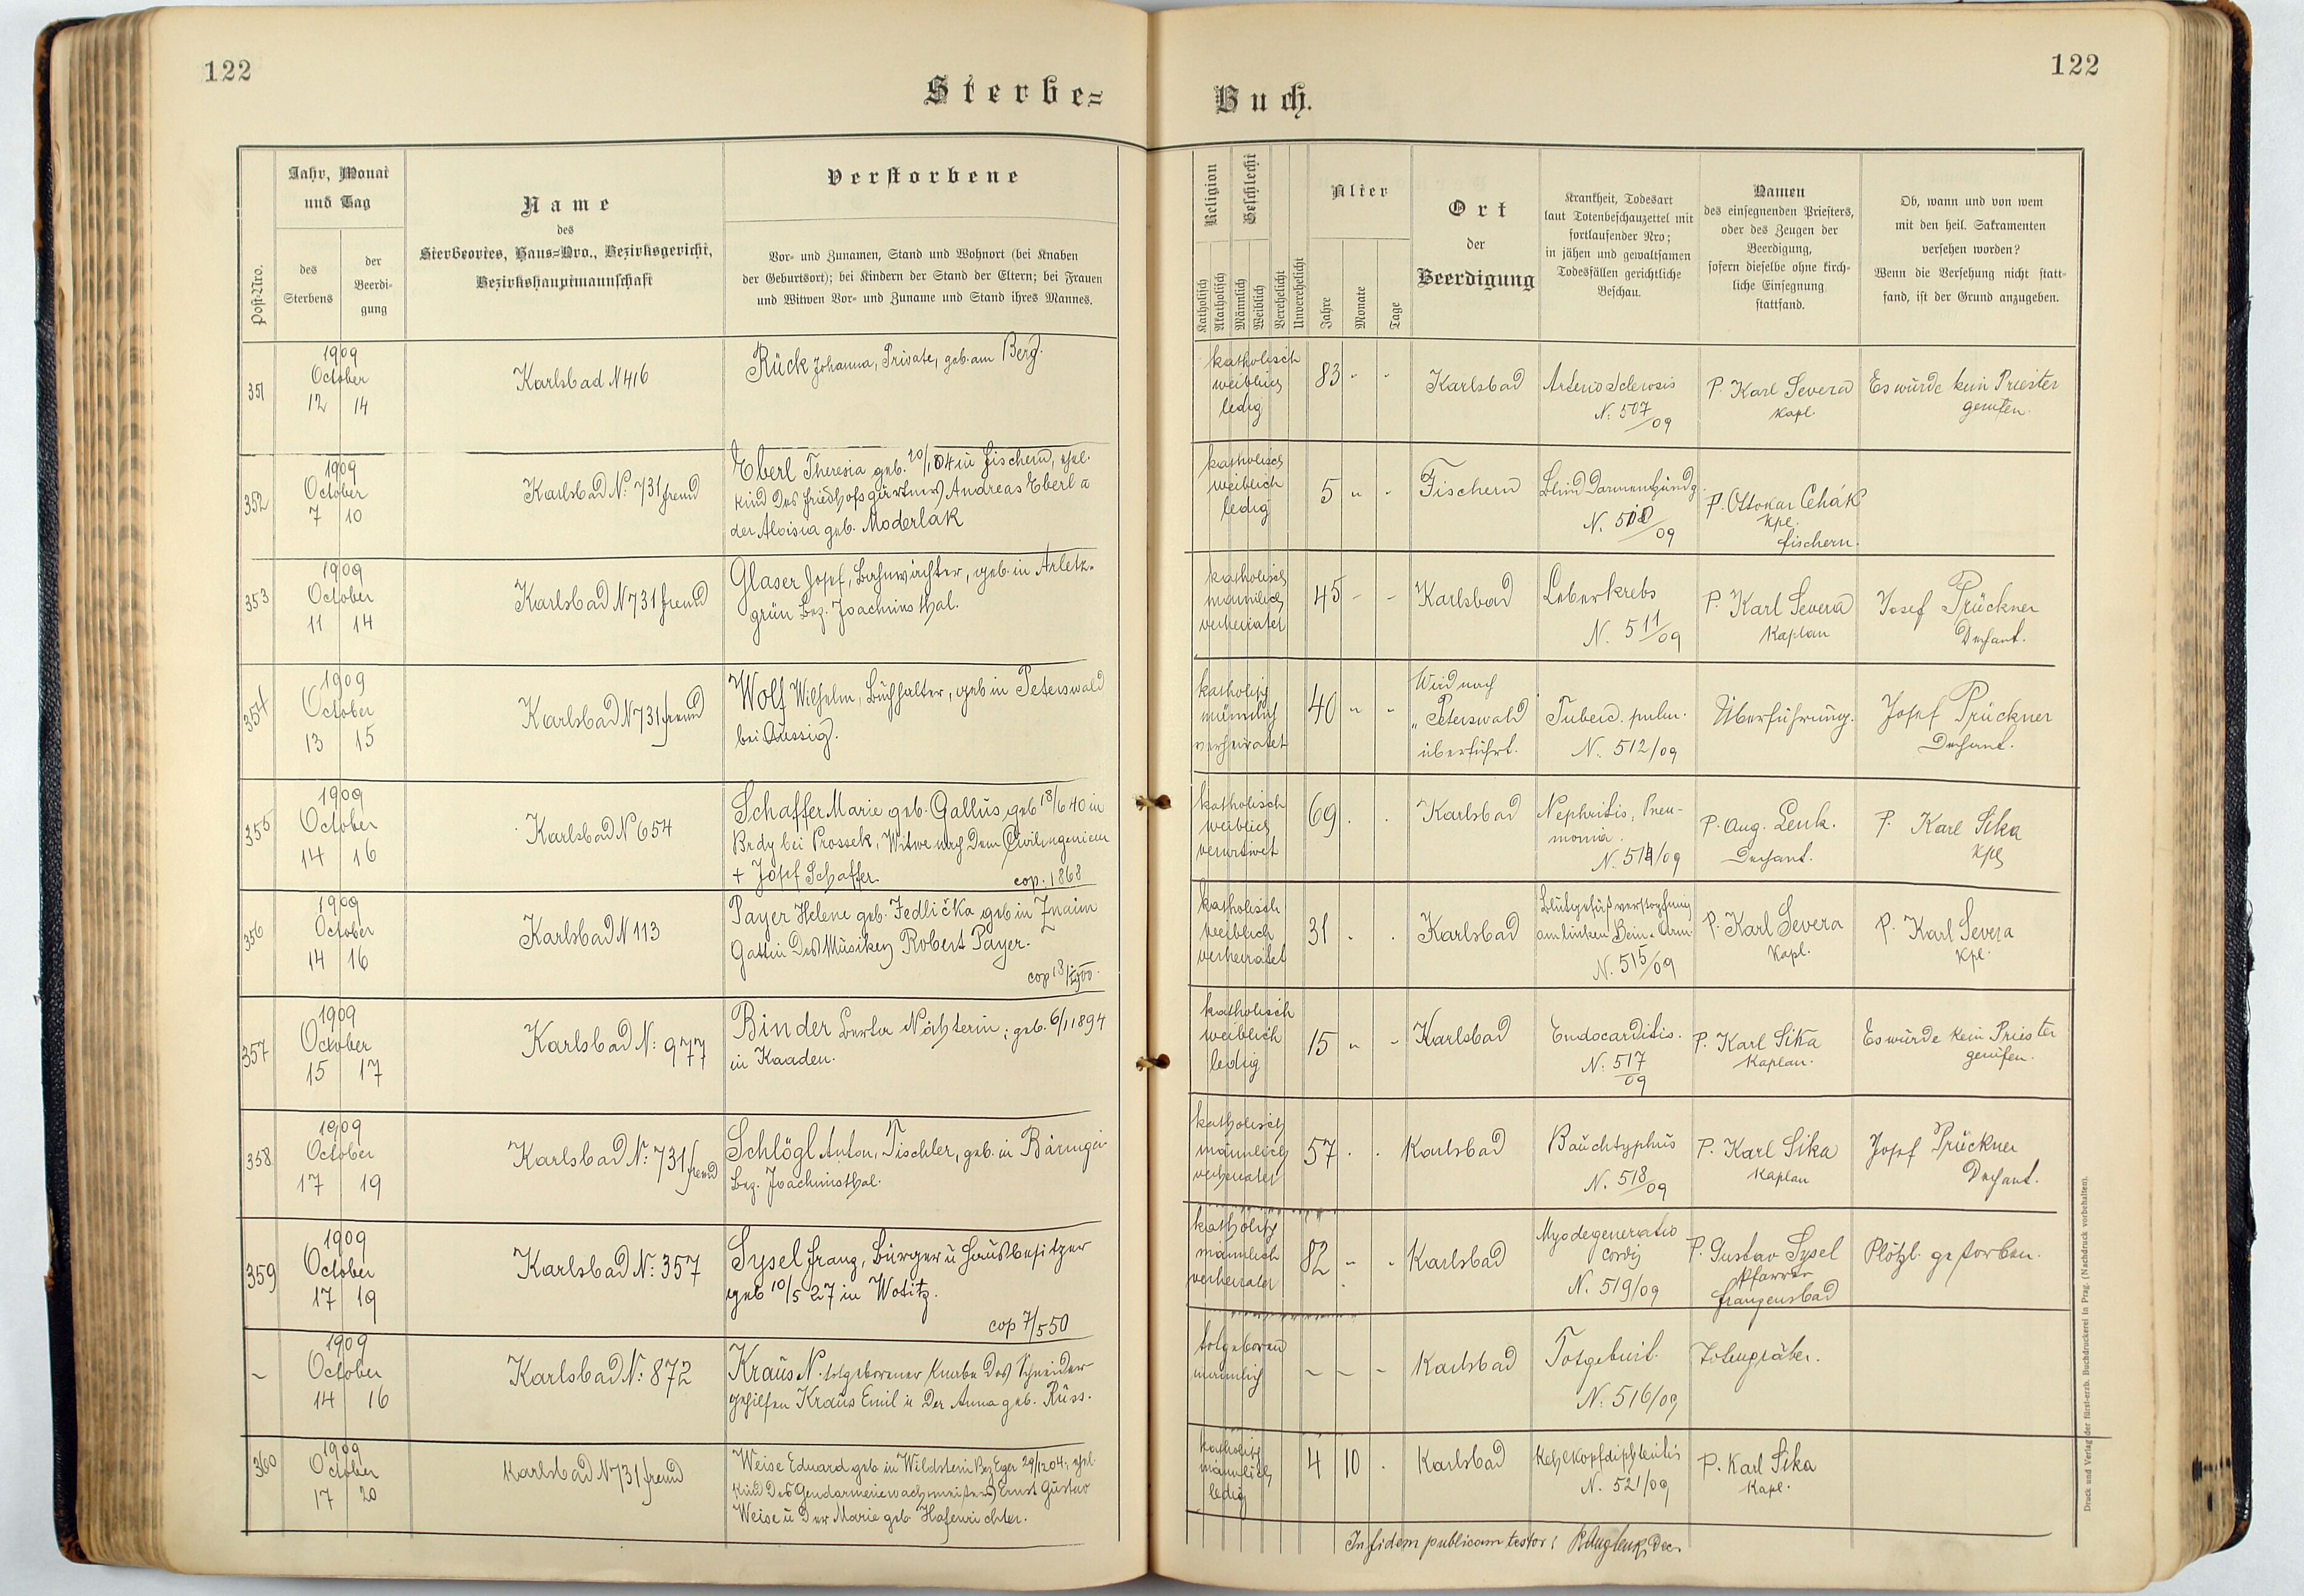 122
122
Sterbe=
Buch.
Post-Nro.
Jahr, Monat
und Tag
des
Sterbens
der
Beerdi-
gung
Name
des
Sterbeortes, Haus=Nro., Bezirksgericht,
Bezirkshauptmannschaft
Verstorbene
Vor- und Zunamen, Stand und Wohnort (bei Knaben
der Geburtsort); bei Kindern der Stand der Eltern; bei Frauen
und Witwen Vor- und Zuname und Stand ihres Mannes.
Religion
Katholisch
Akatholisch
Geschlecht
Männlich
Weiblich
Verehelicht
Unverehelicht
Alter
Jahre
Monate
Tage
Ort
der
Beerdigung
Krankheit, Todesart
laut Totenbeschauzettel mit
fortlaufender Nro;
in jähen und gewaltsamen
Todesfällen gerichtliche
Beschau.
Namen
des einsegnenden Priesters,
oder des Zeugen der
Beerdigung,
sofern dieselbe ohne kirch-
liche Einsegnung
stattfand.
Ob, wann und von wem
mit den heil. Sakramenten
versehen worden?
Wenn die Versehung nicht statt-
fand, ist der Grund anzugeben.
351
1909
October
12 14
Karlsbad N 416
Rück Johanna, Private, geb. am Berg.
katholisch
weiblich
ledig
83 " "
Karlsbad
Arteriosclerosis
N. 507/09
P. Karl Severa
Kapl.
Es wurde kein Priester
gerufen.
352
1909
October
7 10
Karlsbad N: 731 fremd
Eberl Theresia geb. in Fischern, ehel.
Kind des Friedhofsgärtners Andreas Eberl u
der Aloisia geb. Moderlak
katholisch
weiblich
ledig
5 " "
Fischern
Blinddarmentzündg
N. /09
P. Ottokar Cehák
Kpl.
Fischern.
353
1909
October
11 14
Karlsbad N 731 fremd
Glaser Josef, Bahnwächter, geb. in Arletz-
grün Bez. Joachimsthal.
katholisch
männlich
verheiratet
45 - -
Karlsbad
Leberkrebs
N. 511/09
P. Karl Severa
Kaplan
Josef Prückner
Dechant.
354
1909
October
13 15
Karlsbad N 731 fremd
Wolf Wilhelm, Buchhalter, geb in Peterswald
bei Aussig.
katholisch
männlich
verheiratet
40 " "
Wird nach
" Peterswald
überführt.
Tuberc. pulm.
N. 512/09
Überführung.
Josef Prückner
Dechant.
355
1909
October
14 16
Karlsbad N 654
Schaffer Marie geb. Gallus, geb 18/6 40 in
Brdy bei Prossek, Witwe nach dem Civilingenieur
+ Josef Schaffer. cop. 1868
katholisch
weiblich
verwitwet
69 . .
Karlsbad
Nephritis, Pneu-
monia.
N. 514/09
P. Aug. Lenk.
Dechant.
P. Karl Sika
Kpl
356
1909
October
14 16
Karlsbad N 113
Payer Helene geb. Jedlička geb in Znaim
Gattin des Musikers Robert Payer.
katholisch
weiblich
verheiratet
31 . .
Karlsbad
Blutgefäßverstopfung
am linken Bein u. Arm.
N. 515/09
P. Karl Severa
Kapl.
P. Karl Severa
Kpl.
357
1909
October
15 17
Karlsbad N: 977
Binder Berta Nähterin; geb. 6/1 1894
in Kaaden.
katholisch
weiblich
ledig
15 " -
Karlsbad
Endocarditis.
N. 517/09
P. Karl Sika
Kaplan.
Es wurde kein Priester
gerufen.
358
1909
October
17 19
Karlsbad N: 731 fremd
Schlögl Anton, Tischler, geb. in Bäringen
Bez. Joachimsthal.
katholisch
männlich
verheiratet
57 . .
Karlsbad
Bauchtyphus
N. 518/09
P. Karl Sika
Kaplan
Josef Prückner
Dechant.
359
1909
October
17 19
Karlsbad N: 357
Sysel Franz, Bürger u Hausbesitzer
geb 10/5 27 in Wotitz.
cop 7/5 50
katholisch
männlich
verheiratet
82 - -
Karlsbad
Myodegeneratio
cordis
N. 519/09
P. Gustav Sysel
Pfarrer
Franzensbad
Plötzl. gestorben.
-
1909
October
14 16
Karlsbad N: 872
Kraus N. totgeborener Knabe des Schneider-
gehilfen Kraus Emil u der Anna geb. Rüss.
totgeboren
männlich
- - -
Karlsbad
Totgeburt.
N. 516/09
Totengräber.
360
1909
October
17 20
Karlsbad N 731 fremd
Weise Eduard geb in Wildstein Bez Eger 29/12 04, ehel.
Kind des Gendarmeriewachmeisters Ernst Gustav
Weise u der Marie geb Hafenrichter.
katholisch
männlich
ledig
4 10 .
Karlsbad
Kehlkopfdiphteritis
N. 521/09
P. Karl Sika
Kapl.
In fidem publicam testor: P. Aug Lenk, Dec.
Druck und Verlag der fürst-erzb. Buchdruckerei in Prag. (Nachdruck vorbehalten).